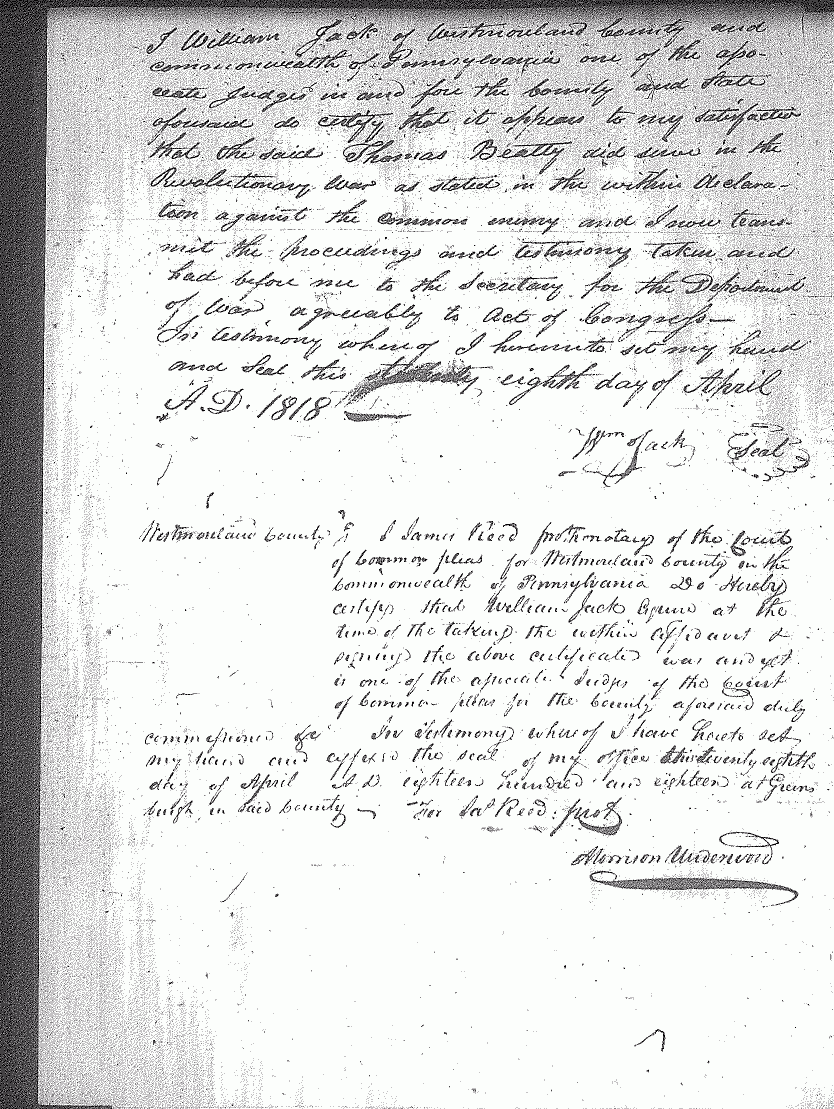 I William Jack of Westmoreland County and
commonwealth of Pennsylvania one of the asso-
ciate Judges in and fore the County and State
aforesaid do certify that it appears to my satisfaction
that the said Thomas Beatty did serve in the
Revolutionary War as stated in the within declara-
tion against the common enemy and I now trans-
mit the proceedings and testimony taken and
had before me to the Secretary for the Department
of War, agreeably to Act of Congress—
In testimony whereof I hereunto set my hand
and Seal this eighth day of April
A.D. 1818
Wm Jack Seal
Westmoreland County I James Reed prothonotary of the Court
of Common pleas for Westmoreland County in the
Commonwealth of Pennsylvania Do Hereby
certify that William Jack Esquire at the
time of the taking the within affidavit &
signing the above certificate was and yet
is one of the associate Judges of the Court
of Common pleas for the County aforesaid duly
commissioned &c In Testimony whereof I have hereto set
my hand and affixed the seal of my office this twenty eighth
day of April A.D. eighteen hundred and eighteen at Greens
burgh in said County — For Jas Reed. prot
Morrison Underwood